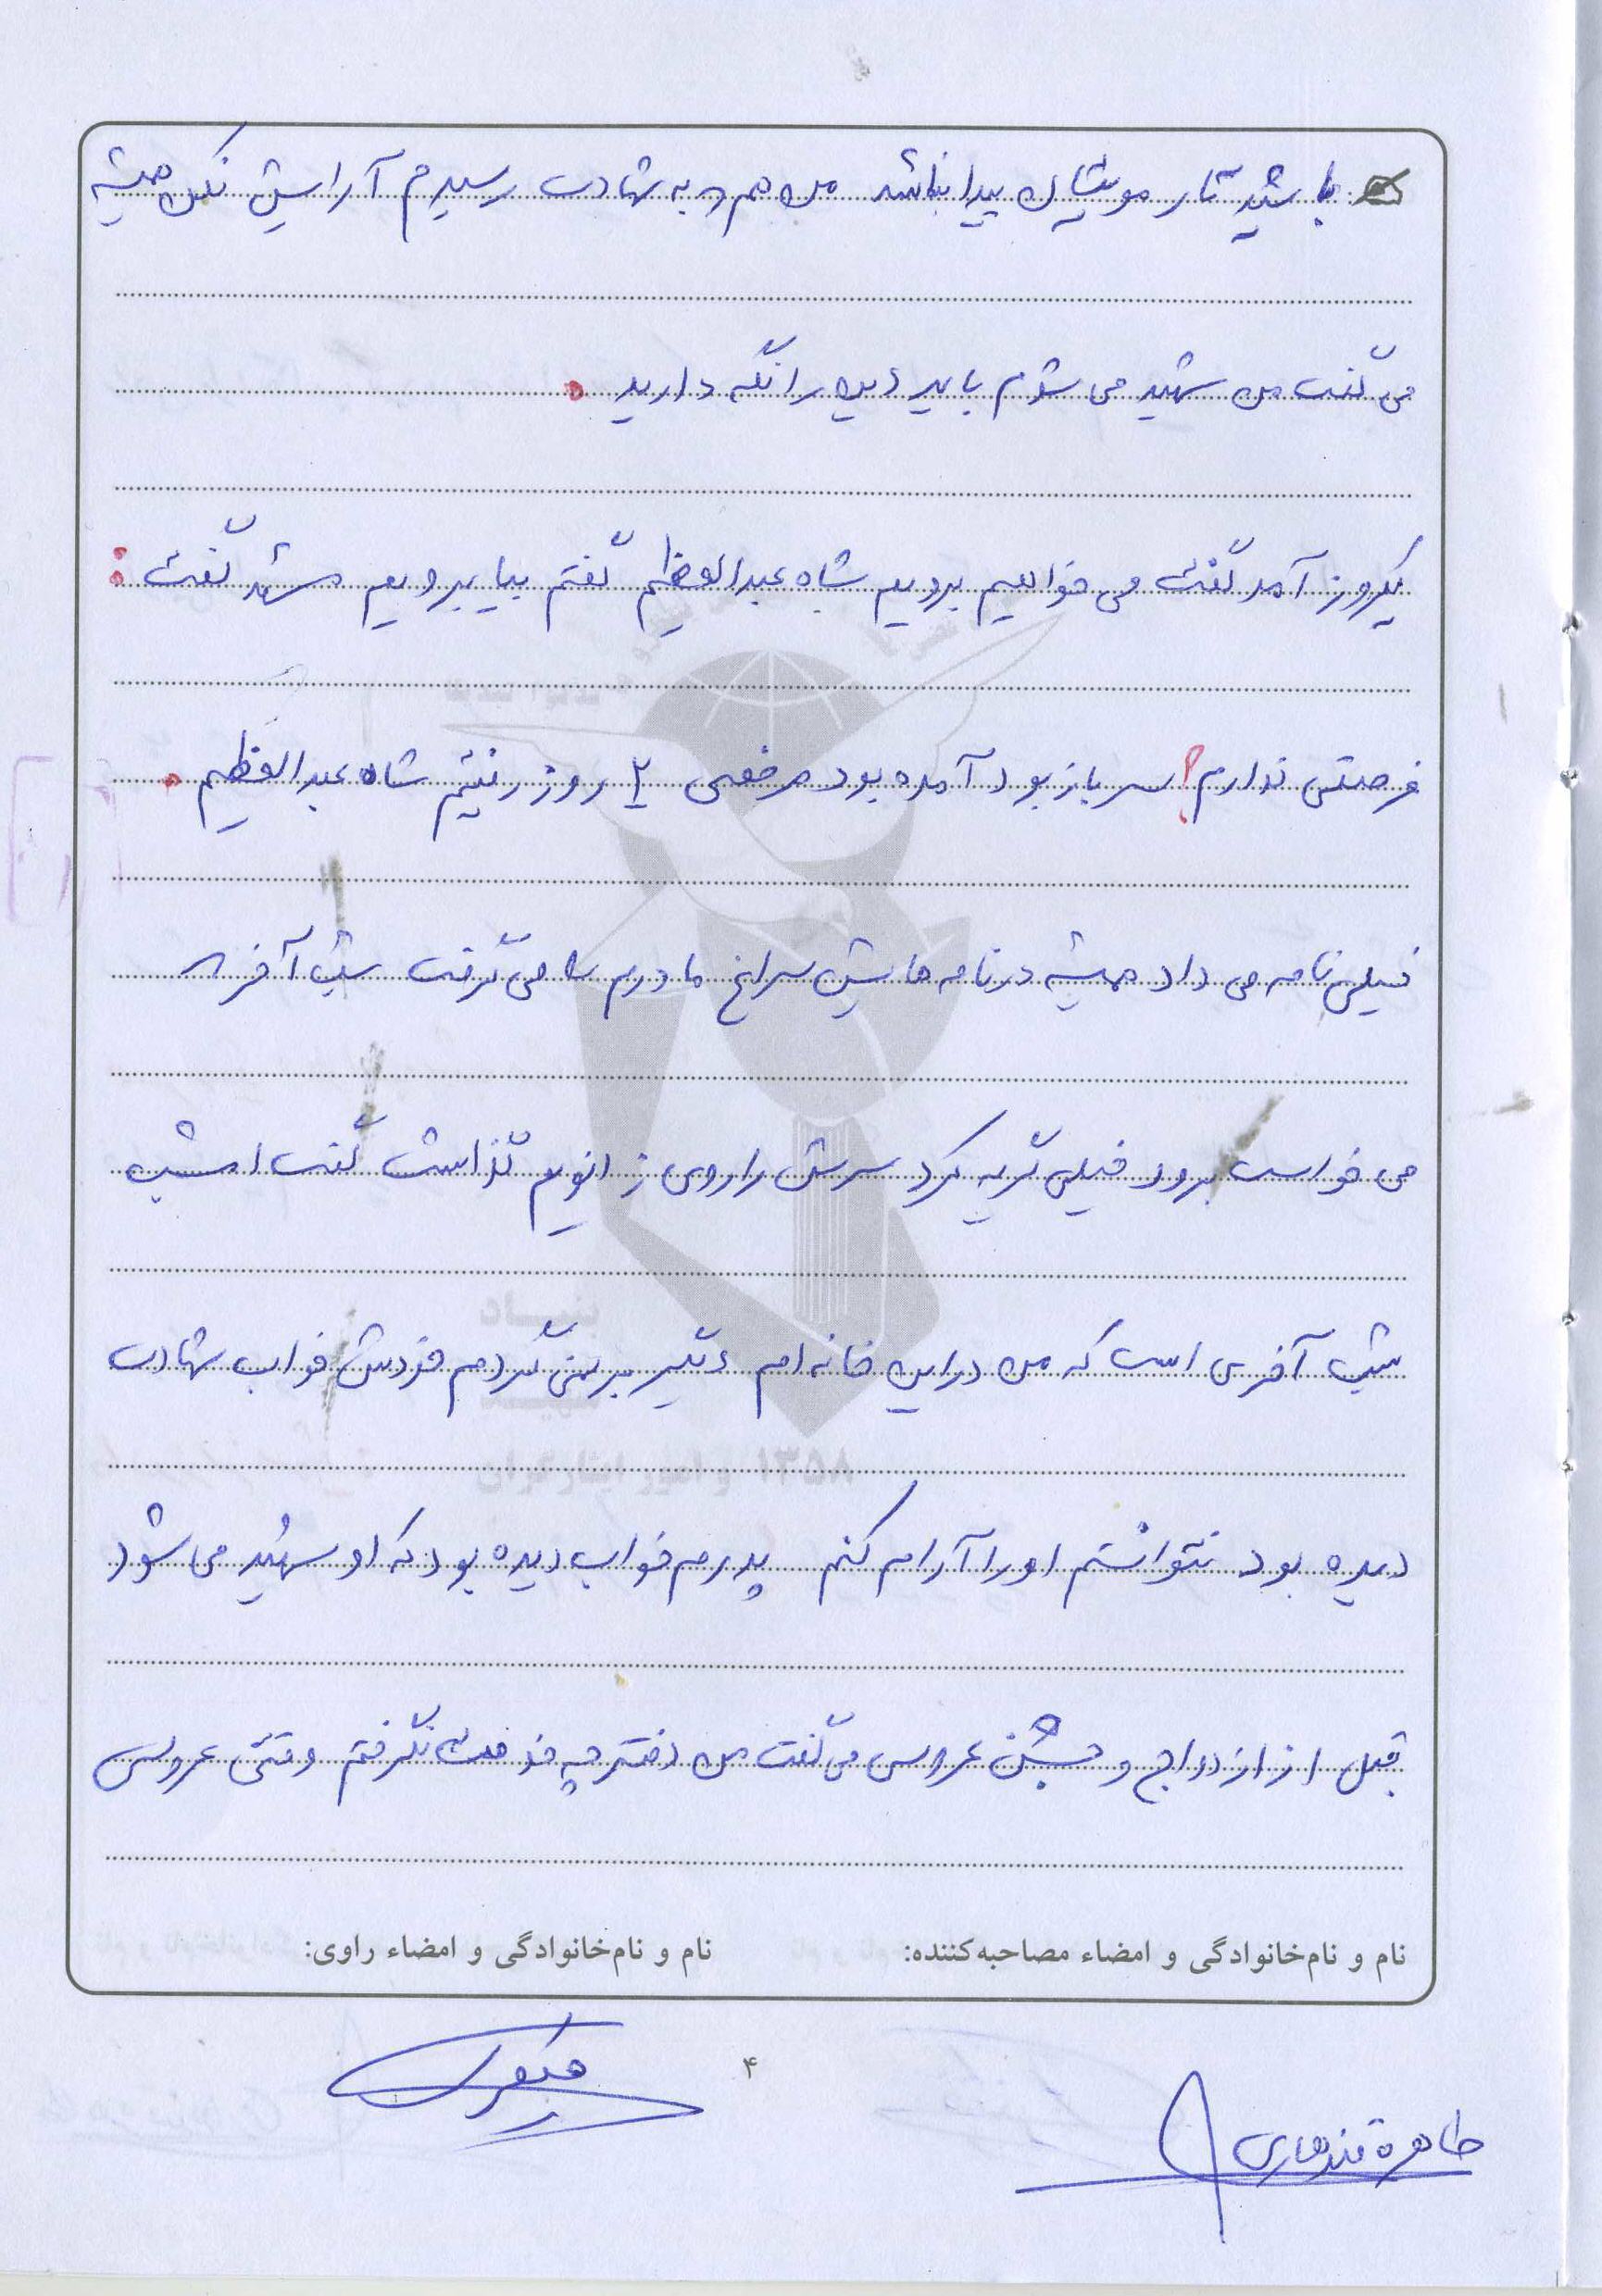 باشید تار مویتان پیدا نباشد من هم به شهادت رسیدم آرایش نکن همیشه
می گفت من شهید می شوم باید دین را نگه دارید .
یکروز آمد گفت می خواهیم برویم شاه عبدالعظیم گفتم بیا برویم مشهد گفت :
فرصتی ندارم ؟ سرباز بود آمده بود مرخصی ۲ روز رفتیم شاه عبدالعظیم .
خیلی نامه می داد همیشه در نامه هایش سراغ مادرم را می گرفت شب آخر
می خواست برود خیلی گریه کرد سرش را روی زانویم گذاشت گفت امشب
شب آخری است که من در این خانه ام دیگر برنمی گردم خودش خواب شهادت
دیده بود نتوانستم او را آرام کنم پدرم خواب دیده بود که او شهید می شود
قبل از ازدواج و جشن عروسی می گفت من دفترچه خدمت نگرفتم وقتی عروسی
نام و نام‌خانوادگی و امضاء مصاحبه‌کننده: نام و نام‌خانوادگی و امضاء راوی:
۴
طاهره قندهاری
بنیاد
شهید
۱۳۵۸ و امور ایثارگران